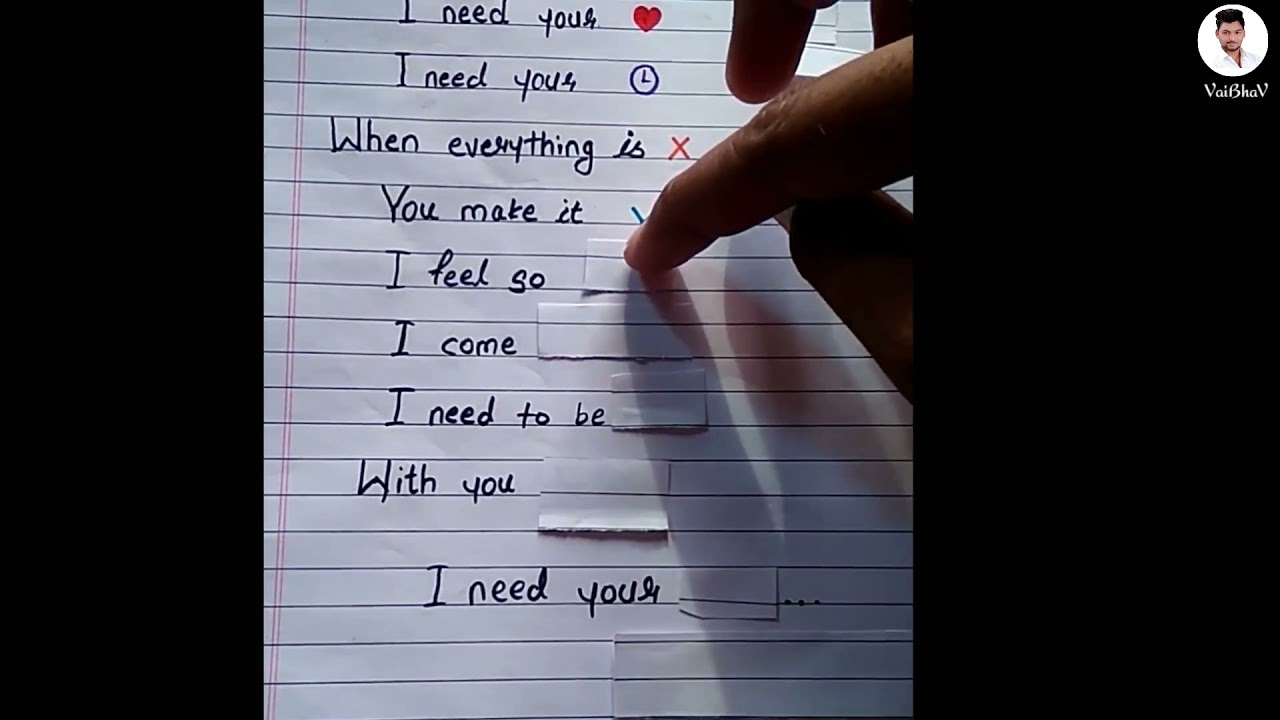 I need your
I need your
When everything is X
You make it
I feel so
I come
I need to be
With you
I need your ...
VaiBhaV